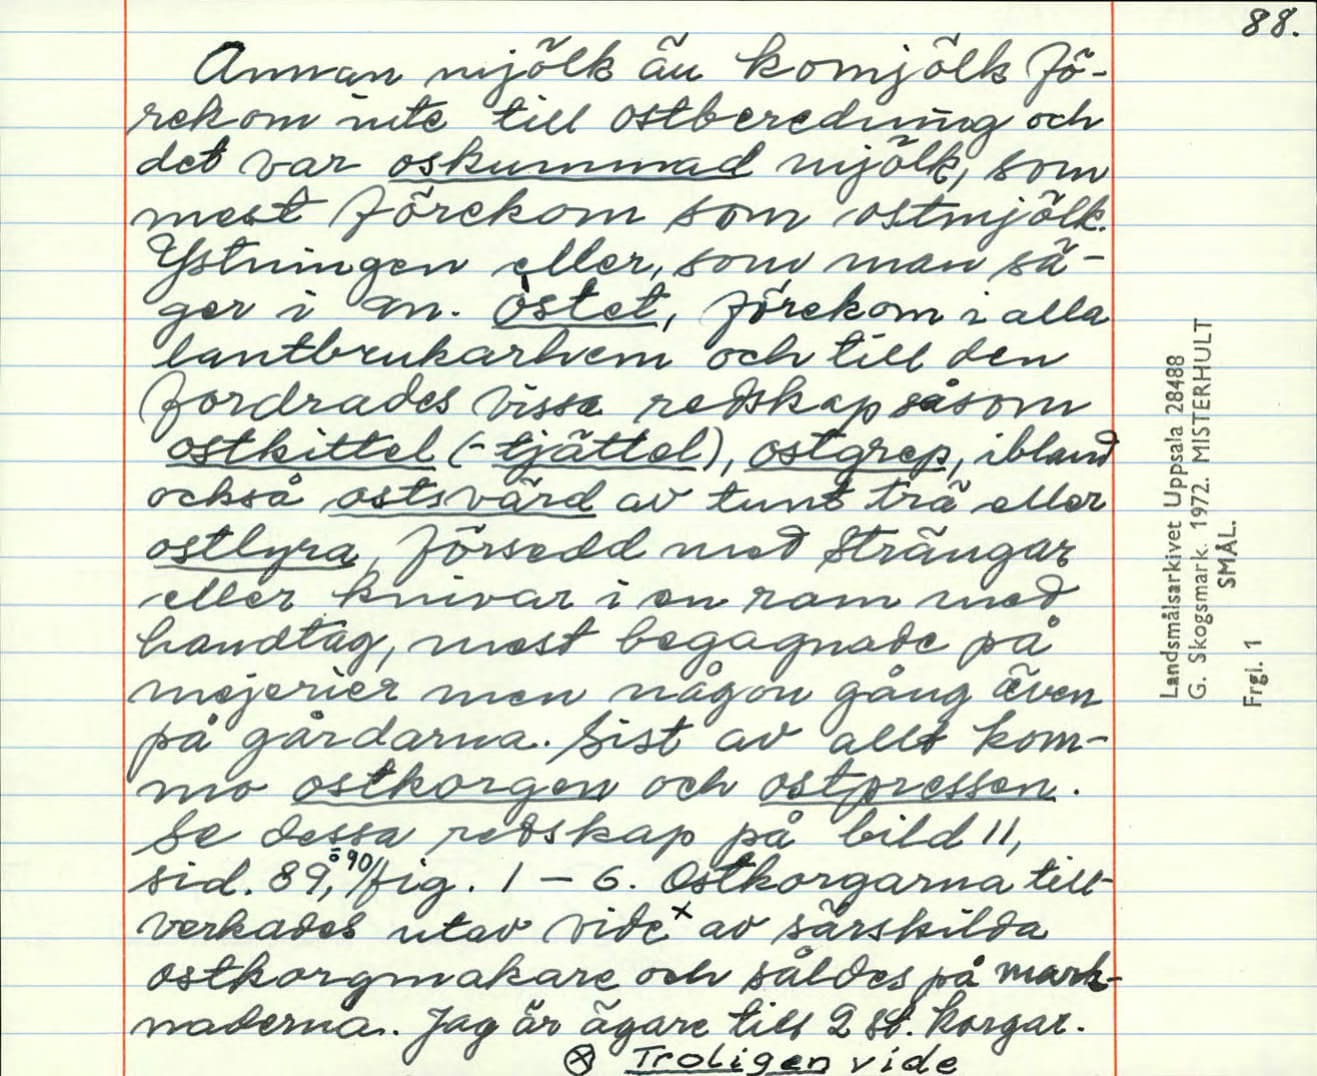 88.
Annan mjölk än komjölk fö-
rekom inte till ostberedning och
det var oskummad mjölk, som
mest förekom som ostmjölk.
Ystningen eller, som man sä-
ger i an. òstet, förekom i alla
lantbrukarhem och till den
fordrades vissa redskap såsom
ostkittel (-tjättel), ostgrep, ibland
också ostsvärd av tunt trä eller
ostlyra, försedd med strängar
eller knivar i en ram med
handtag, mest begagnade på
mejerier men någon gång även
på gårdarna. Sist av allt kom-
mo ostkorgen och ostpressen.
Se dessa redskap på bild 11,
sid. 89, o 90/fig. 1 – 6. Ostkorgarna till-
verkades utav vide x av särskilda
ostkorgmakare och såldes på mark-
naderna. Jag är ägare till 2 st. korgar.
⊗ Troligen vide
Landsmålsarkivet Uppsala 28488
G. Skogsmark. 1972. MISTERHULT
SMÅL.
Frgl. 1